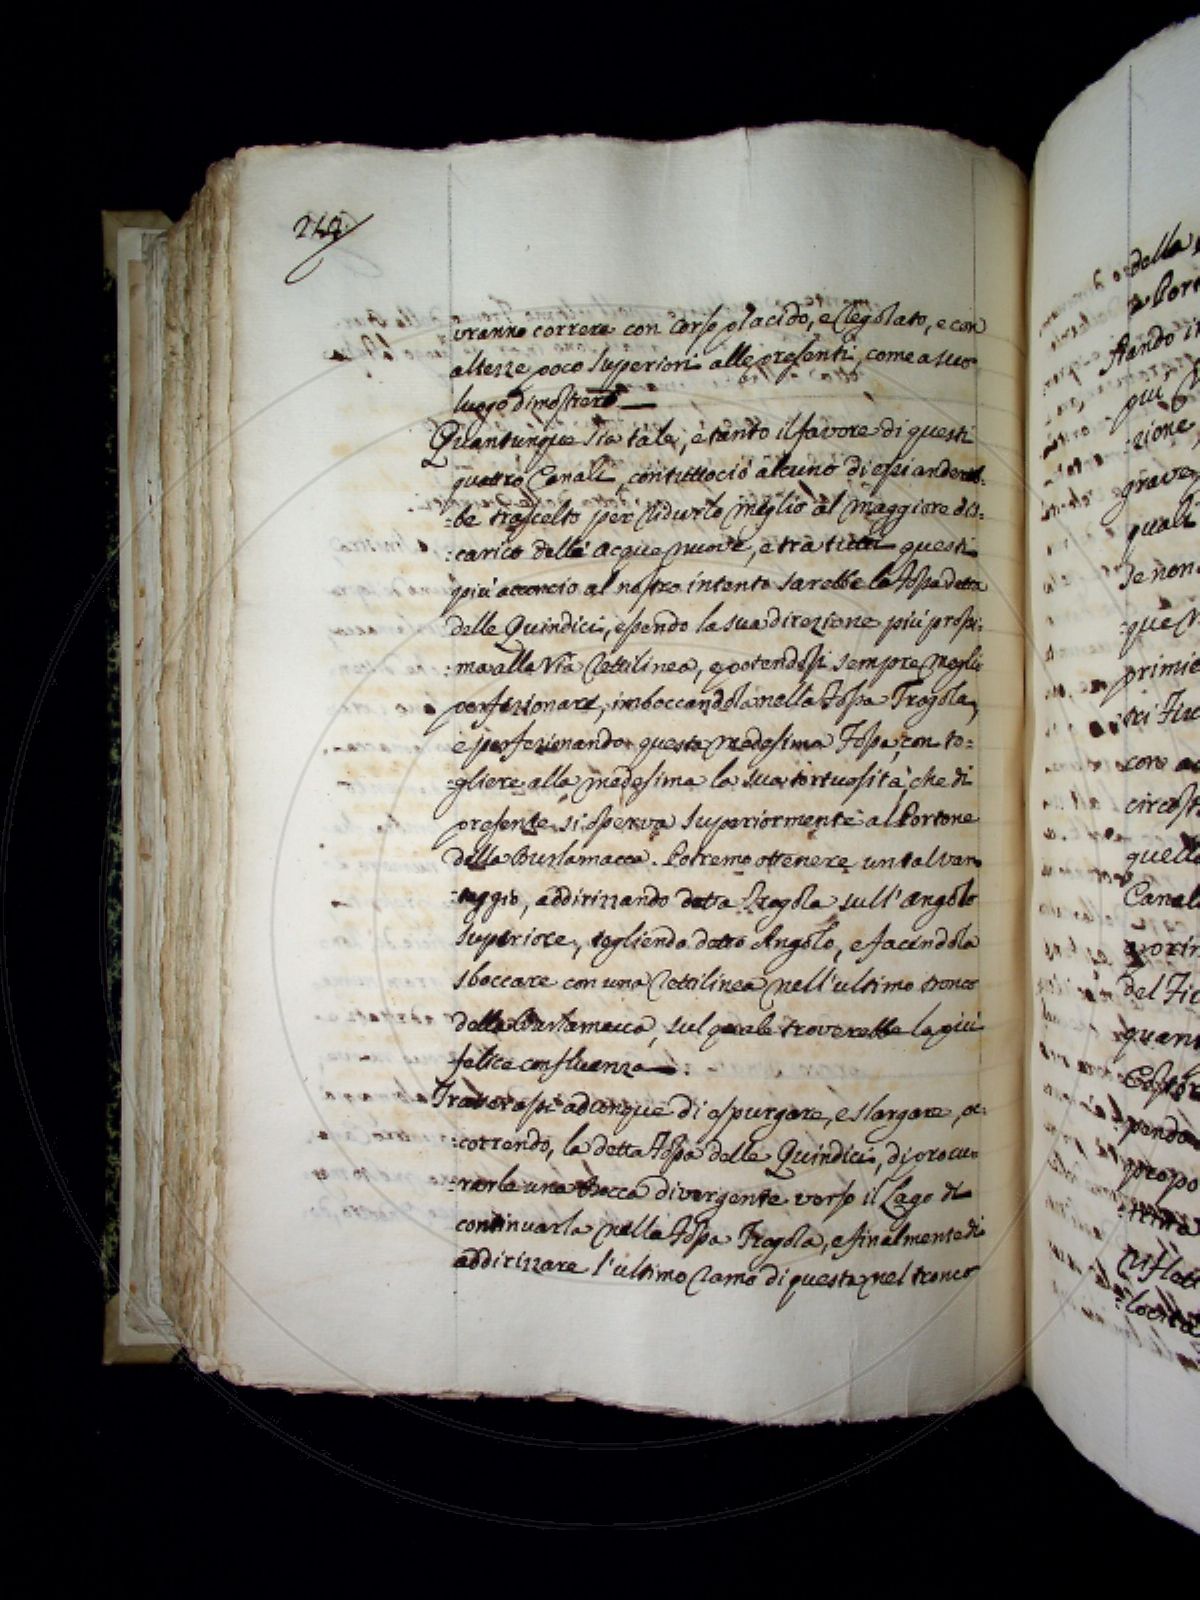 242.
vranno correre con corso placido, e regolato, e con
altezze poco superiori alle presenti, come a suo
luogo dimostrerò
Quantunque sia tale, e tanto il favore di questi
quattro Canali, contuttociò alcuno di essi andereb:
:be trascelto per ridurlo meglio al maggiore dis:
:carico delle acque nuove, e tra tutti questi
più acconcio al nostro intento sarebbe la Fossa detta
delle Quindici, essendo la sua direzione più prossi:
:ma alla via rettilinea, e potendosi sempre meglio
perfezionare, imboccandola nella Fossa Fragola,
e perfezionando questa medesima Fossa, con to:
:gliere alla medesima la sua tortuosità, che di
presente si osserva superiormente al Portone
della Burlamacca. Potremo ottenere un tal van:
:taggio, addirizzando detta Fragola sull'angolo
superiore, togliendo detto Angolo, e facendola
sboccare con una rettilinea nell'ultimo tronco
della Burlamacca, sul quale troverebbe la più
felice confluenza.
Tratterassi adunque di espurgare, e slargare, oc:
:correndo, la detta Fossa delle Quindici, di procu:
:rarle una Bocca divergente verso il Lago di
continuarla nella Fossa Fragola, e finalmente di
addirizzare l'ultimo ramo di questa nel tronco
della
a Port
stando il
qui
:zione
grave
quali
se non
:que
primie
tri Fiu
core
circost
quelle
Canal
del Fiu
quant
pendo
propo